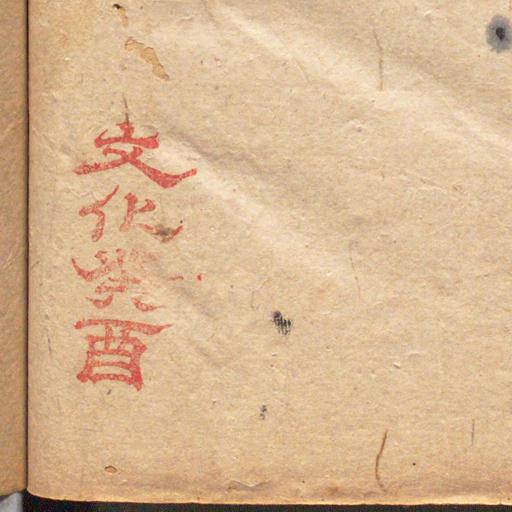 文化癸酉